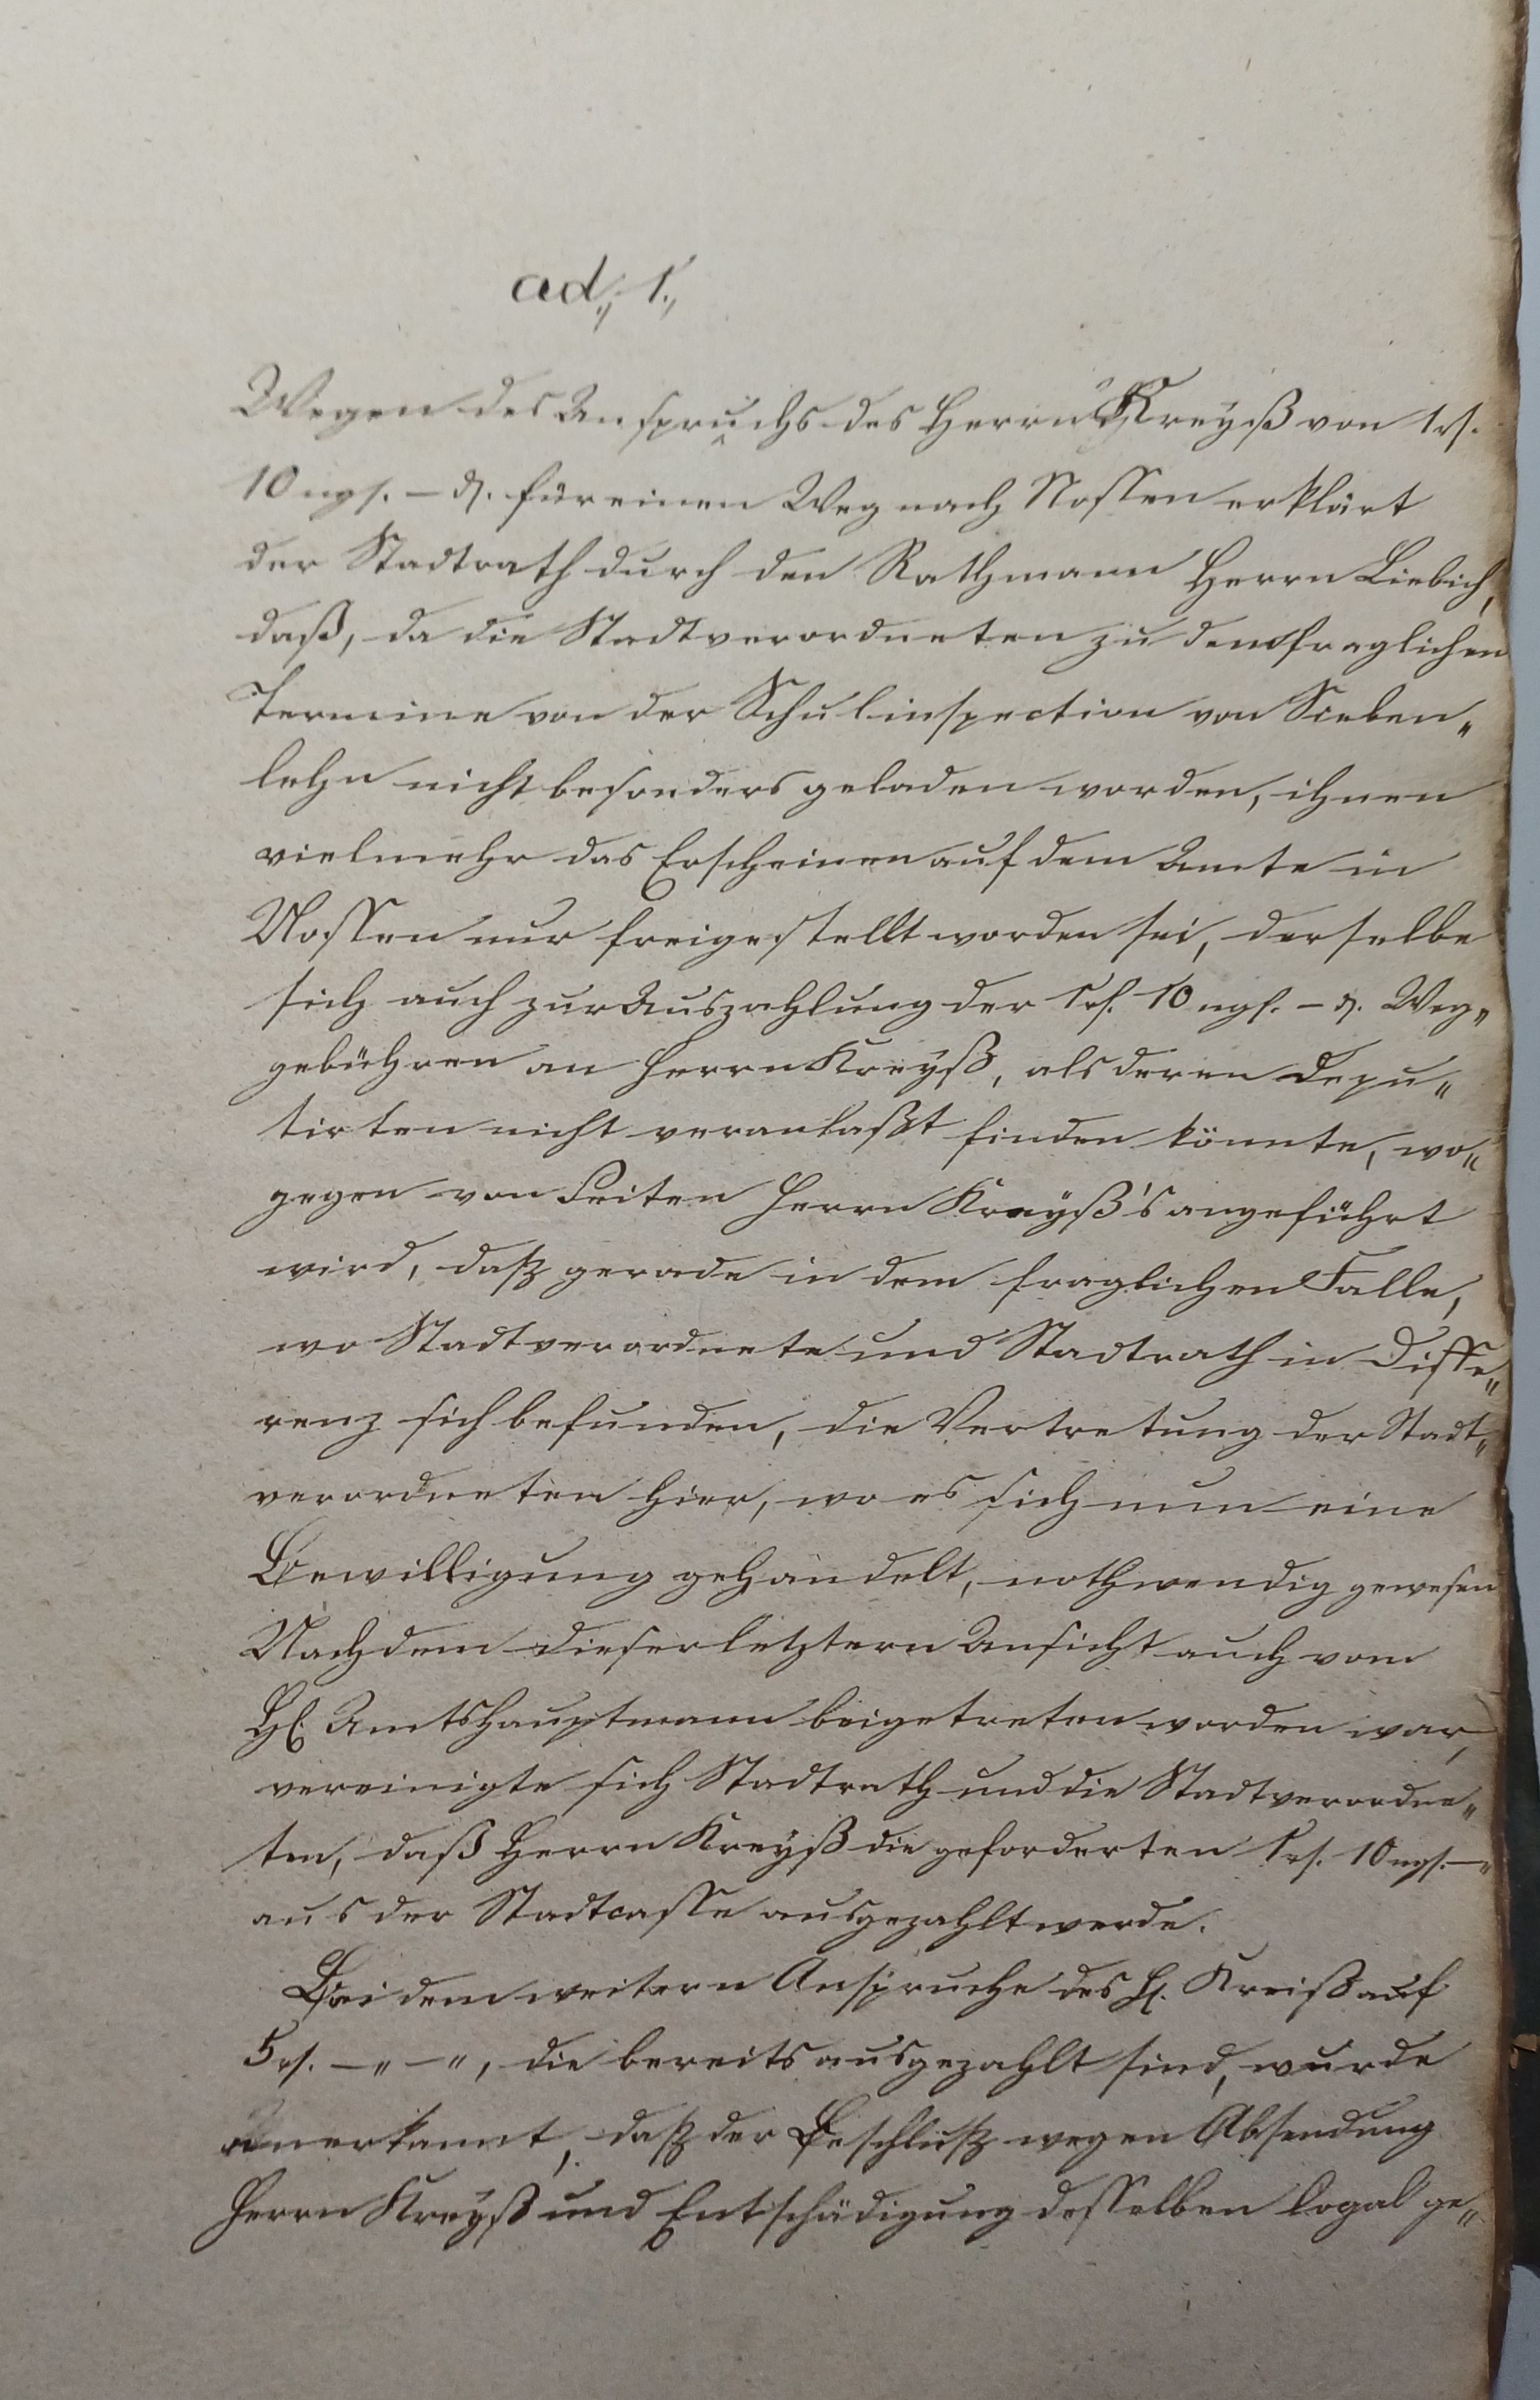 ad., 1.,
Wegen des Anspruchs des Herrn Kreyß von 1 rf.
10 ngf. – δ. für einen Weg nach Nossen erklärt
der Stadtrath durch den Rathmann Herrn Liebich,
daß, da die Stadtverordneten zu dem fraglichen
Termine von der Schulinspection von Sieben„
lehn nicht besonders geladen worden, ihnen
vielmehr das Erscheinen auf dem Amte in
Nossen nur freigestellt worden sei, derselbe
sich auch zur Auszahlung der 1 rf. 10 ngf. – δ. Weg„
gebühren an Herrn Kreyß, als deren Depu„
tirten nicht veranlaßt finden könnte, wo„
gegen von Seiten Herrn Kreyß's angeführt
wird, daß gerade in dem fraglichen Falle,
wo Stadtverordnete und Stadtrath in Diffe„
renz sich befunden, die Vertretung der Stadt„
verordneten hier, wo es sich um eine
Bewilligung gehandelt, nothwendig gewesen
Nachdem dieser letztern Ansicht auch vom
H. Amtshauptmann beigetreten worden war,
vereinigte sich Stadtrath und die Stadtverordne„
ten, daß Herrn Kreyß die geforderten 1 rf. 10 ngf. –„
aus der Stadtcasse ausgezahlt werde.
Bei dem weitern Anspruche des H. Kreiß auf
5 rf. –„ –„, die bereits ausgezahlt sind, wurde
anerkannt, daß der Beschluß wegen Absendung
Herrn Kreyß und Entschädigung desselben legal ge„